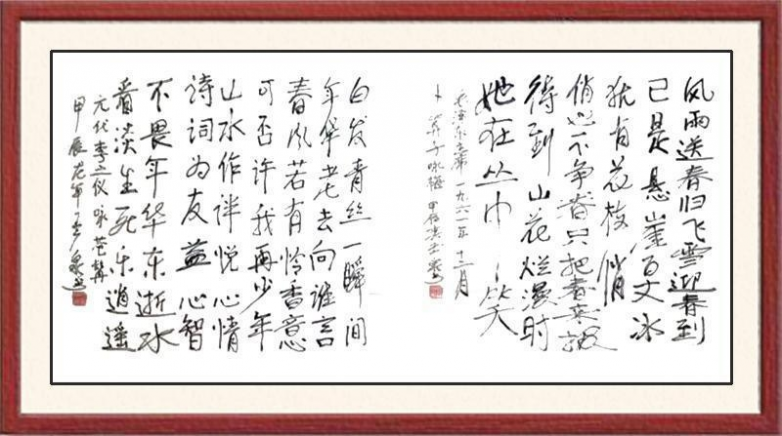 风雨送春归飞雪迎春到
已是悬崖百丈冰
犹有花枝俏
俏也不争春只把春来报
待到山花烂漫时
她在丛中笑
毛泽东主席一九六一年十二月
卜算子咏梅 甲辰
白发青丝一瞬间
年华老去向谁言
春风若有怜香意
可否许我再少年
山水作伴悦心情
诗词为友益心智
不畏年华东逝水
看淡生死乐逍遥
元代李之仪咏
甲辰龙年